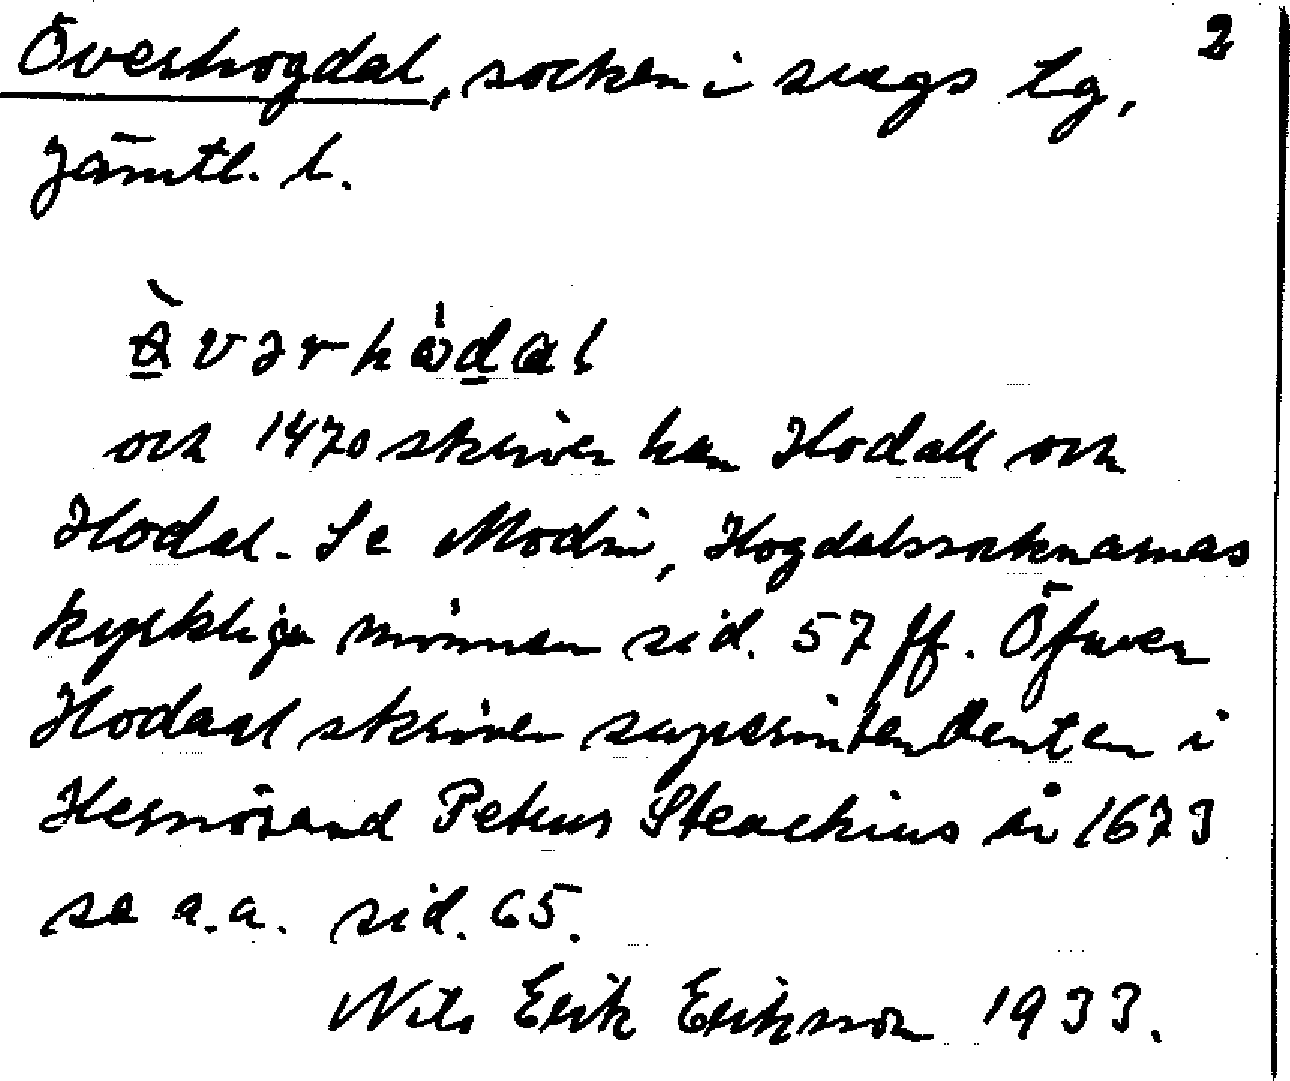 2
Överhogdal, socken i svegs tg,
Jämtl. l.
och 1470 skriver han Hodall och
Hodal. Se Modin, Hogdalssocknarnas
kyrkliga minnen sid. 57 ff. Öfwer
Hodaal skriver superintendenten i
Hernösand Petrus Steuchius år 1673
se a.a. sid. 65.
Nils Erik Eriksson 1933.